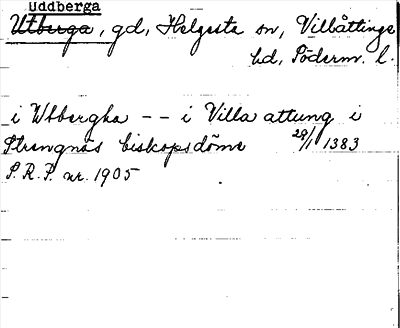 Uddberga
Utberga, gd, Helgesta sn, Villåttinge
hd, Söderm. l.
i Wtbergha -- i Villa attung i
Strengnäs biskopsdöme 29/1 1383
S.R.P. nr. 1905